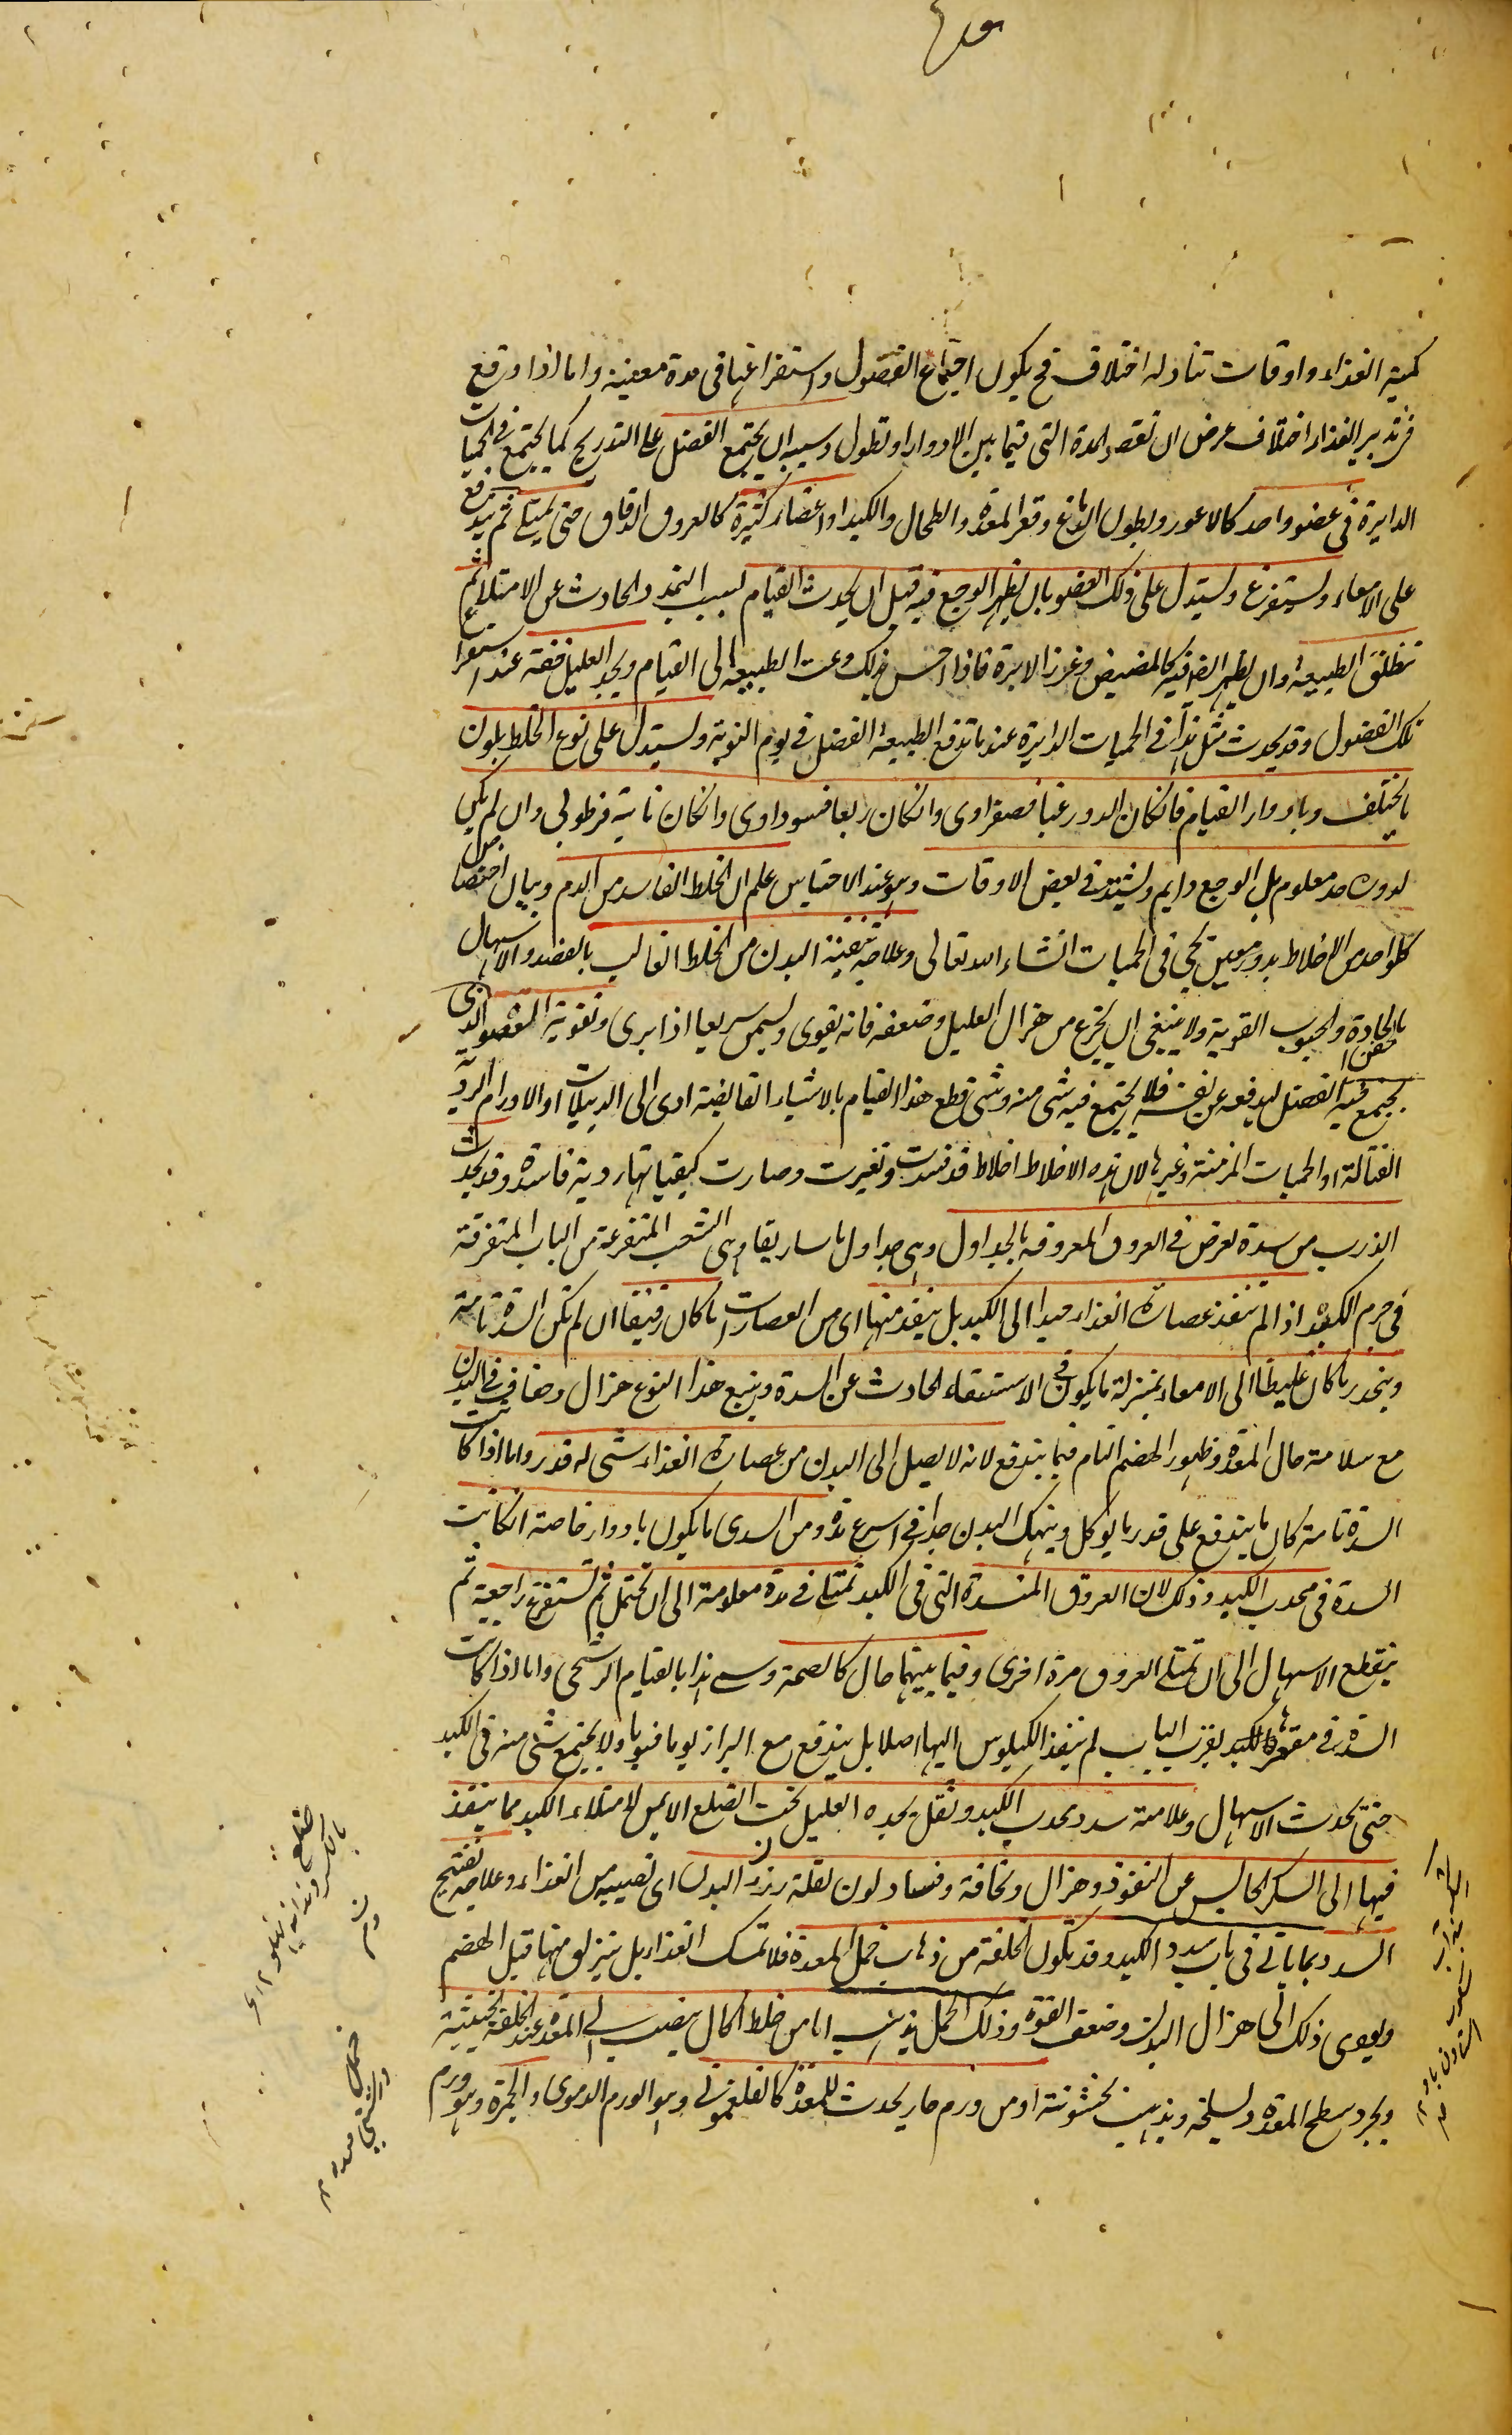 كمية الغذاء واوقات تناوله اختلاف فح يكون اجتماع الفضول واستفراغها فى مدة معينة واما اذا وقع
فى تدبير الغذاء اختلاف عرض ان تقصر المدة التى فيما بين الادوار او تطول وسببه ان يجتمع الفضل على التدريج كما يجتمع فى الحميات
الدايرة فى عضو واحد كالاعور وبطون الدماغ وقعر المعدة والطحال والكبد او اعضاء كثيرة كالعروق الدقاق حتى يمتلى ثم يندفع
على الامعاء ويستفرغ ويستدل على ذلك العضو بان يظهر الوجع فيه قبل ان يحدث القيام لسبب التمدد الحادث عن الامتلاء ثم
تنطلق الطبيعة وان يظهر ايضا فيه كالمضيض وغرز الابرة فاذا احس ذلك دعت الطبيعة الى القيام ويجد العليل خفة عند استفراغ
تلك الفضول وقد يحدث مثل هذا فى الحميات الدايرة عندما تدفع الطبيعة الفضل فى يوم النوبة ويستدل على نوع الخلط بلون
ما يختلف وبادوار القيام فان كان الدور غبا فصفراوى وان كان ربعا فسوداوى وان كان نائبة فرطوبى وان لم يكن
لدوره حد معلوم بل الوجع دايم ويشتد فى بعض الاوقات وهو عند الاحتباس علم ان الخلط الفاسد من الدم وبيان اختصاص
كل واحد من الاخلاط بدور معين يجى فى الحميات انشاء الله تعالى وعلاجه تنقية البدن من الخلط الغالب بالفصد والاسهال
بالحقن الحادة والحبوب القوية ولا ينبغى ان يجزع من هزال العليل وضعفه فانه يقوى ويسمن سريعا اذا برى وتقوية العضو الذى
يجتمع فيه الفضل ليدفعه عن نفسه فلا يجتمع فيه شى منه ومتى قطع هذا القيام بالاشياء القابضة ادى الى الدبيلات او الاورام الردية
القتالة او الحميات المزمنة وغيرها لان هذه الاخلاط اخلاط قد فسدت وتغيرت وصارت كيفياتها ردية فاسدة وقد يحدث
الذرب من سدة تعرض فى العروق المعروفة بالجداول وهى جداول ماساريقا وهى الشعب المتفرعة من الباب المتفرقة
فى جرم الكبد اذا لم تنفذ عصارة الغذاء جيدا الى الكبد بل ينفذ منها اى من العصارات ما كان رقيقا ان لم تكن السدة تامة
وينحدر ما كان غليظا الى الامعاء بمنزلة ما يكون فى الاستسقاء الحادث عن السدة ويتبع هذا النوع هزال وجفاف فى البدن
مع سلامة حال المعدة وظهور الهضم التام فيما يندفع لانه لا يصل الى البدن من عصارة الغذاء شى له قدر واما اذا كانت
السدة تامة كان ما يندفع على قدر ما يوكل وينهك البدن جدا فى اسرع مدة ومن السدى ما يكون بادوار خاصة ان كانت
السدة فى محدب الكبد وذلك لان العروق المنسدة التى فى الكبد تمتلى فى مدة معلومة الى ان تحتمل ثم تستفرغ راجعة ثم
ينقطع الاسهال الى ان تمتلى العروق مرة اخرى وفيما بينهما حال كالصحة وسمى هذا بالقيام الرشحى واما اذا كانت
السدة فى مقعر الكبد بقرب الباب لم ينفذ الكيلوس اليها اصلا بل يندفع مع البراز يوما فيوما ولا يجتمع شى منه فى الكبد
حتى يحدث الاسهال وعلامة سدد محدب الكبد وثقل يجده العليل تحت الضلع الايمن لامتلاء الكبد مما ينفذ
فيها الى السدد الحابس عن النفوذ وهزال ونحافة وفساد لون لقلة رزء البدن اى نصيبه من الغذاء وعلاجه تفتيح
السدد بما ياتى فى باب سدد الكبد وقد تكون الخلفة من ذهاب خمل المعدة فلا تمسك الغذاء بل ينزلق منها قبل الهضم
ويودى ذلك الى هزال البدن وضعف القوة وذلك الخمل يذهب اما من خلط اكال ينصب الى المعدة عند الخلفة الخبيثة
ويجرد سطح المعدة ويسلخه ويذهب بخشونته او من ورم حار يحدث للمعدة كالفلغمونى وهو الورم الدموى والحمرة وهو ورم